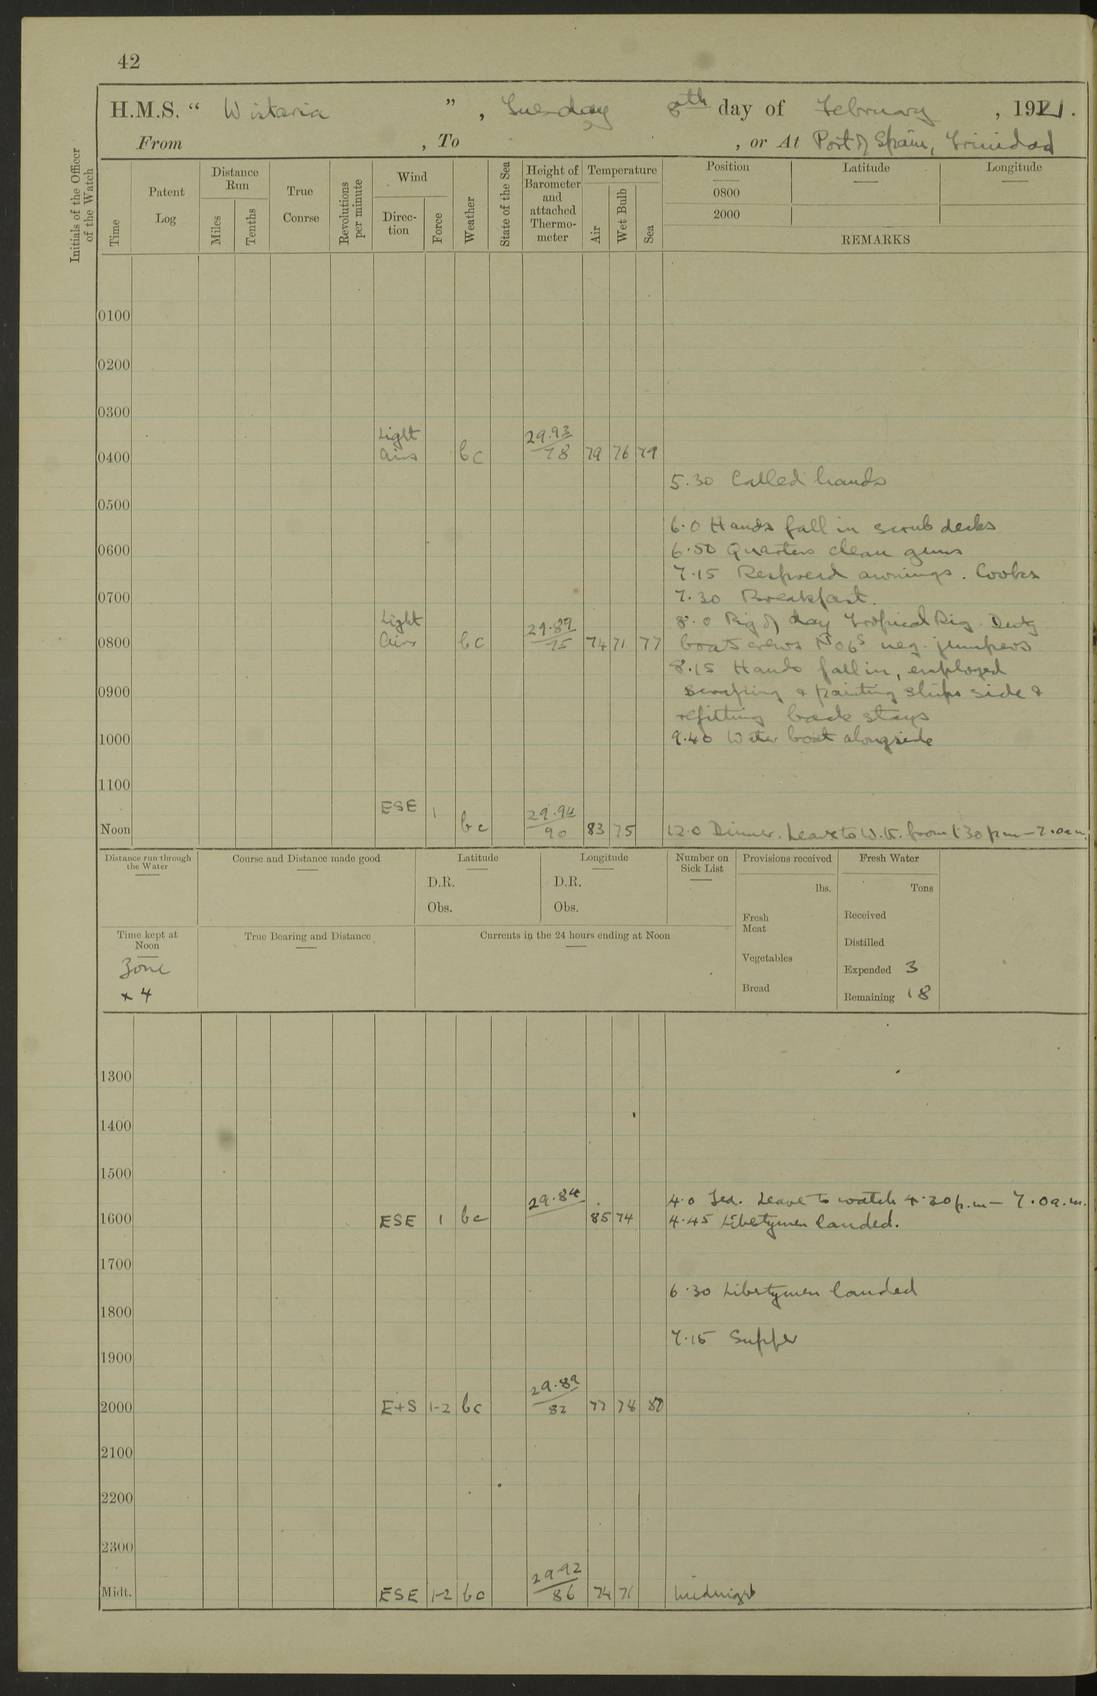 42
H.M.S. “ Wistaria ” , Tuesday 8th day of February , 1921.
From , To , or At Port of Spain, Trinidad
Initials of the Officer of the Watch
Time
Patent Log
Distance Run
Miles
Tenths
True Course
Revolutions per minute
Wind
Direction
Force
Weather
State of the Sea
Height of Barometer and attached Thermometer
Temperature
Air
Wet Bulb
Sea
Position Latitude Longitude
0800
2000
REMARKS
0100
0200
0300
Light 29.93
0400 airs bc 78 79 76 79
5.30 Called hands
0500
6.0 Hands fall in scrub decks
0600 6.50 Quarters clean guns
7.15 Respread awnings. Cooks
0700 7.30 Breakfast.
Light 29.89 8.0 Rig of day Tropical Rig. Duty
0800 airs bc 75 74 71 77 boats crews Nº 6s neg. jumpers
8.15 Hands fall in, employed
0900 scraping & painting ships side &
refitting back stays
1000 9.40 Water boat alongside
1100
ESE 1 29.94
Noon bc 90 83 75 12.0 Dinner. Leave to W.K. from 1.30 pm – 7.0am
Distance run through the Water
Course and Distance made good
Latitude
D.R.
Obs.
Longitude
D.R.
Obs.
Number on Sick List
Provisions received
lbs.
Fresh Meat
Vegetables
Bread
Fresh Water
Tons
Received
Distilled
Expended 3
Remaining 18
Time kept at Noon
Zone
+ 4
True Bearing and Distance
Currents in the 24 hours ending at Noon
1300
1400
1500
29.84 4.0 Tea. Leave to watch 4.30p.m – 7.0a.m.
1600 ESE 1 bc 85 74 4.45 Libertymen landed.
1700
6.30 Libertymen landed
1800
7.15 Supper
1900
29.89
2000 E+S 1-2 bc 82 77 74 80
2100
2200
2300
29.92
Midt. ESE 1-2 bc 86 74 71 Midnight